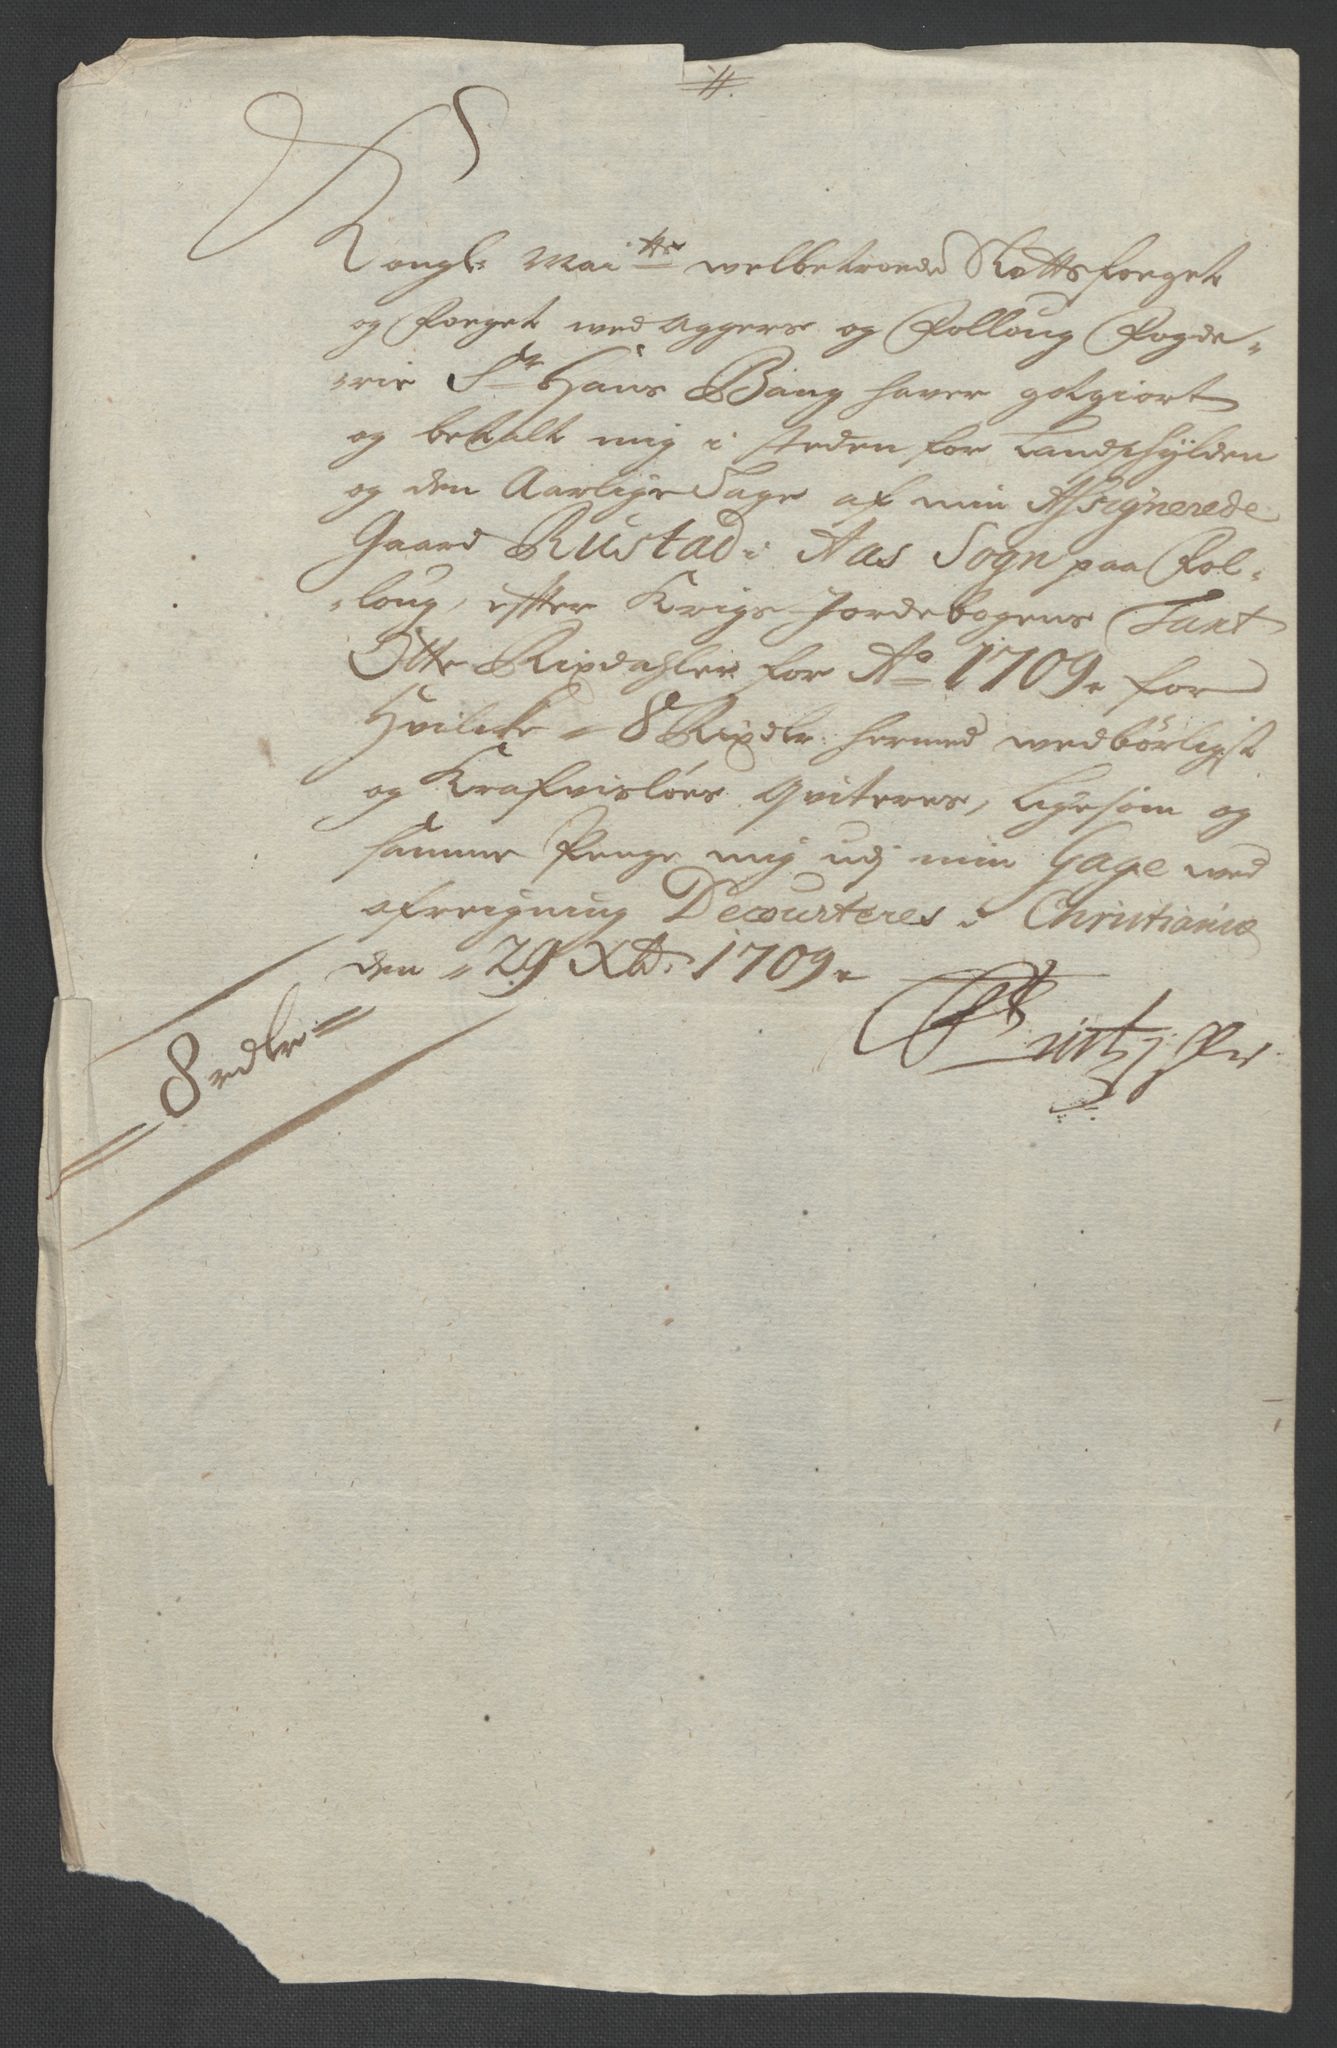 Kongl: Mai<sup>tts</sup> welbetroede Slottsfoeget
og foeget wed Aggers og Folloug Fogde-
-rie S<sup>r</sup> Hans Bang haver gotgiort
og betalt mig i steden for Landschÿlden
og den Aarlige Tage af min Assignerede
Gaard Rustad i Aas Sogn paa Fol-
-loug, effter Krigs Jordebogens Taxt
Otte Rixdahler for A<sup>o</sup> 1709 for
Hvilcke 8 Rixdlr: hermed wedbörligst
og Krafvislöes Qviteres, ligesom og
samme Penge mig udj min Gage wed
afreigning Decourteres. Christiania
den 29 Xb: 1709
8 rdlr